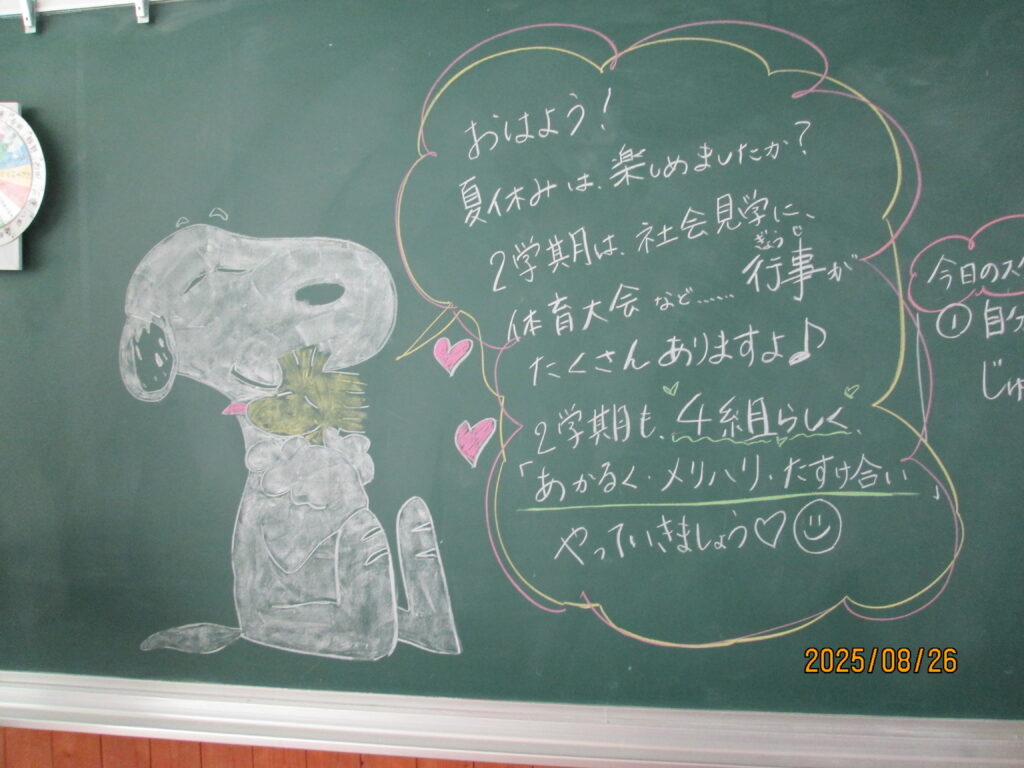 おはよう!
夏休みは、楽しめましたか?
2学期は、社会見学に、
体育大会など……行事が
ぎょう じ
たくさんありますよ♪
2学期も、4組らしく、
「あかるく・メリハリ・たすけ合い」
やっていきましょう♡
今日のスケ
① 自分
じゅ
2025/08/26